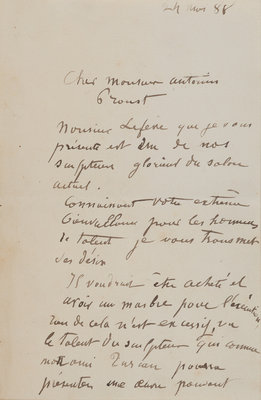 Cher Monsieur Antonin
Proust
Monsieur Lefèvre que je vous
présente est un de nos
sculpteurs glorieux du salon
actuel.
Connaissant votre extrême
bienveillance pour les hommes
de talent je vous transmet
ses désirs
Il voudrait être acheté et
avoir un marbre pour l'exécution
rien de cela n'est excessif, vu
le talent du sculpteur qui comme
mon ami Turcan pourra
présenter une œuvre pouvant